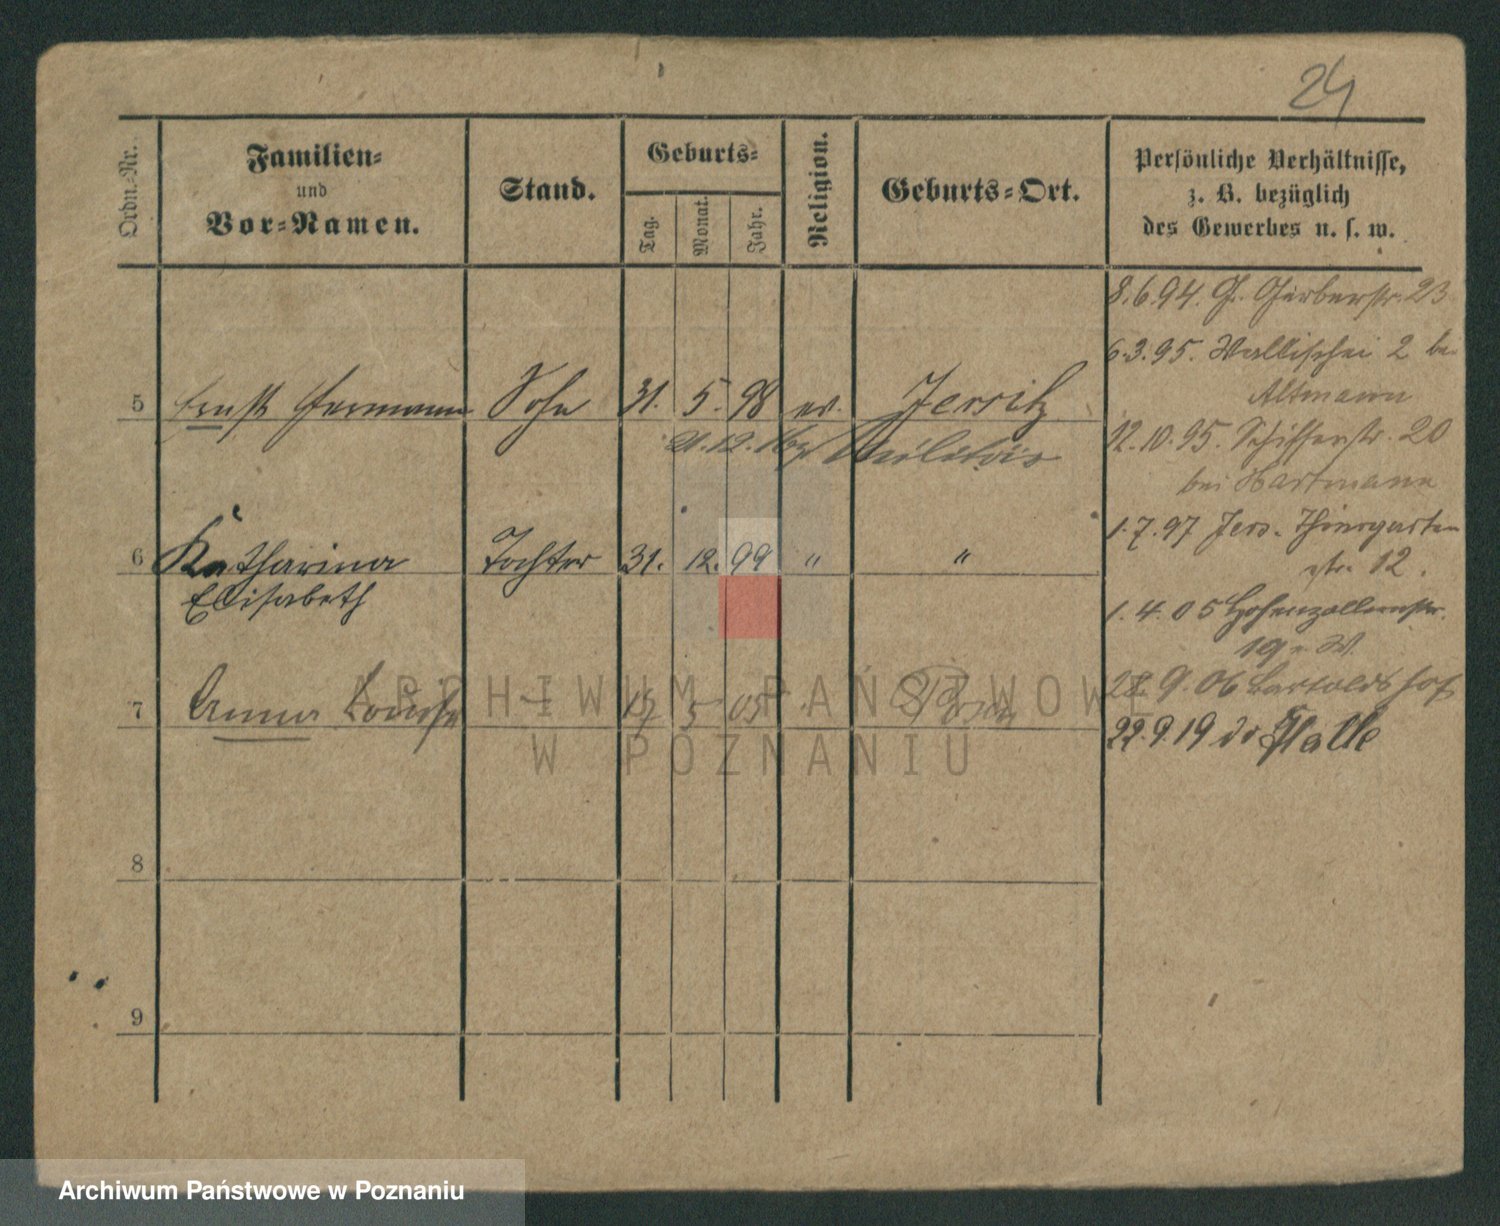 24
Ordn.-Nr.
Familien-
und
Vor-Namen.
Stand.
Geburts-
Tag.
Monat.
Jahr.
Religion.
Geburts-Ort.
Persönliche Verhältnisse,
z. B. bezüglich
des Gewerbes u. s. w.
8.6.94. Gr. Gerberstr. 23
6.3.95. Wallischei 2 bei
Altmann
5 Ernst Hermann Sohn 31. 5. 98 ev. Jersitz
21.12.16 Militär
12.10.95. Schifferstr. 20
bei Hartmann
1.7.97 Jers. Thiergarten
str. 12.
6 Katharina Tochter 31. 12. 99 " "
Elisabeth
1.4.05 Hohenzollernstr.
19
7 Anna Louise 5 05 Posen
28.9.06 Bartoldshof
22.9.19 Halle
8
9
ARCHIWUM PAŃSTWOWE
W POZNANIU
Archiwum Państwowe w Poznaniu